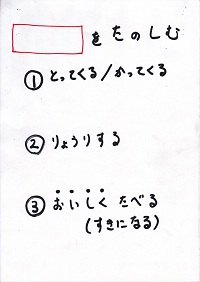 をたのしむ
①とってくる/かってくる
②りょうりする
③おいしくたべる
(すきになる)